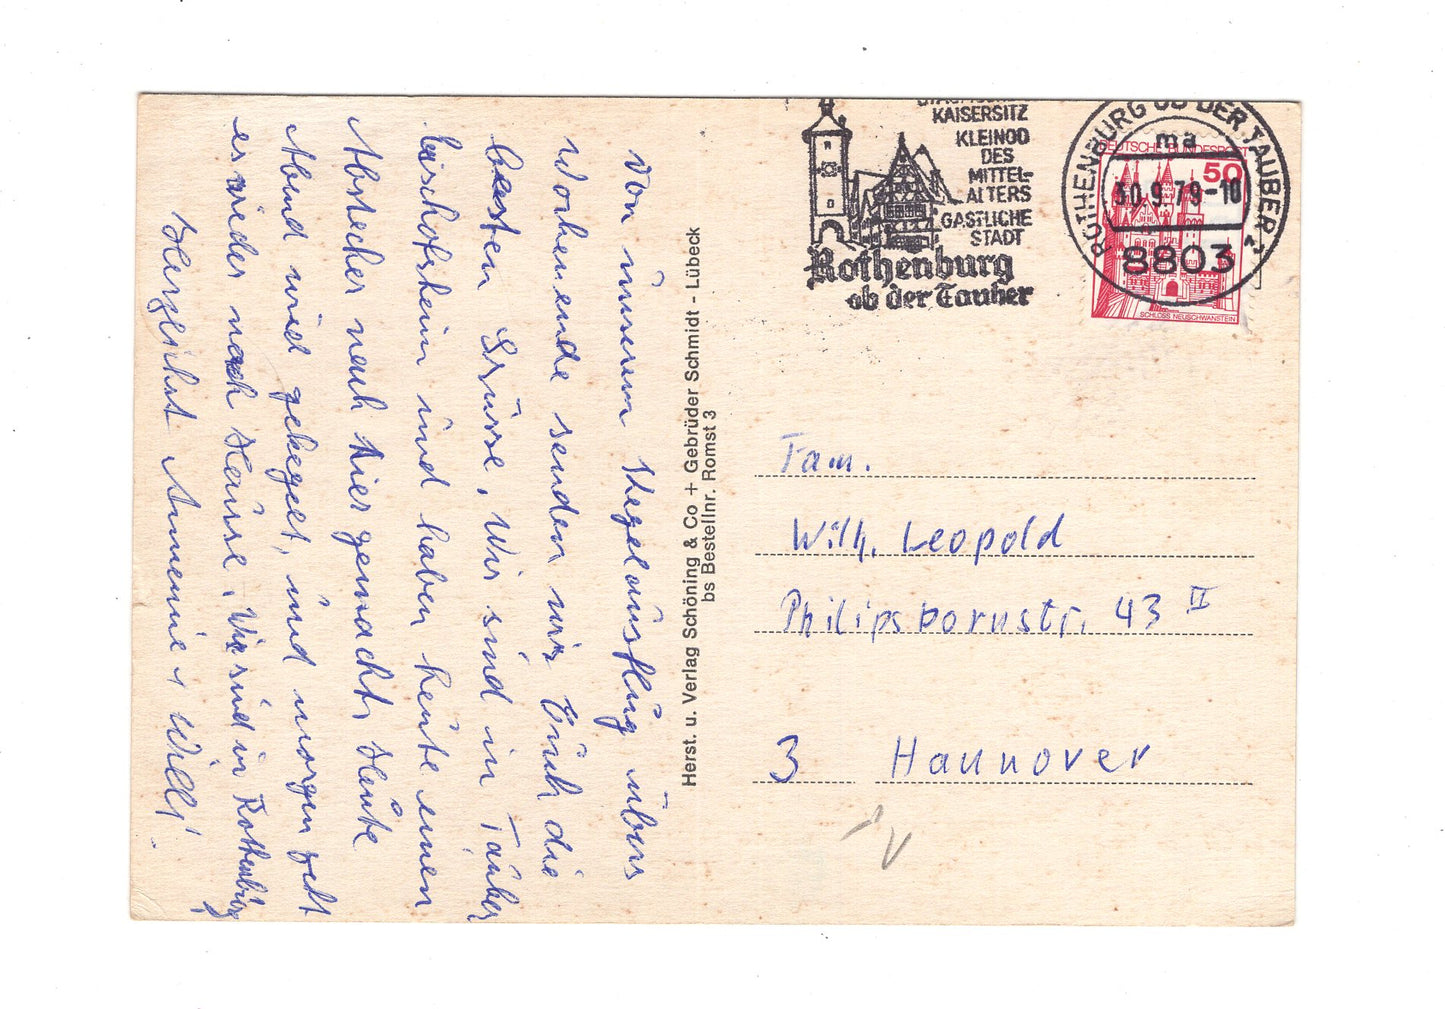 Von unserem Kegelausflug übers
Wochenende senden wir Euch die
besten Grüsse. Wir sind in Tauber
bischofsheim und haben heute einen
Abstecher nach hier gemacht. Heute
Abend wird gekegelt, und morgen geht
es wieder nach Hause. Wir sind in Rothenburg
Herzlichst Annemie + Willi
Herst. u. Verlag Schöning & Co + Gebrüder Schmidt - Lübeck
bs Bestellnr. Romst 3
KAISERSITZ
KLEINOD
DES
MITTEL-
ALTERS
GASTLICHE
STADT
Rothenburg
ob der Tauber
ROTHENBURG OB DER TAUBER 2
ma
30.9.79-10
8803
DEUTSCHE BUNDESPOST
50
SCHLOSS NEUSCHWANSTEIN
Fam.
Wilh. Leopold
Philipsbornstr. 43 II
3 Hannover